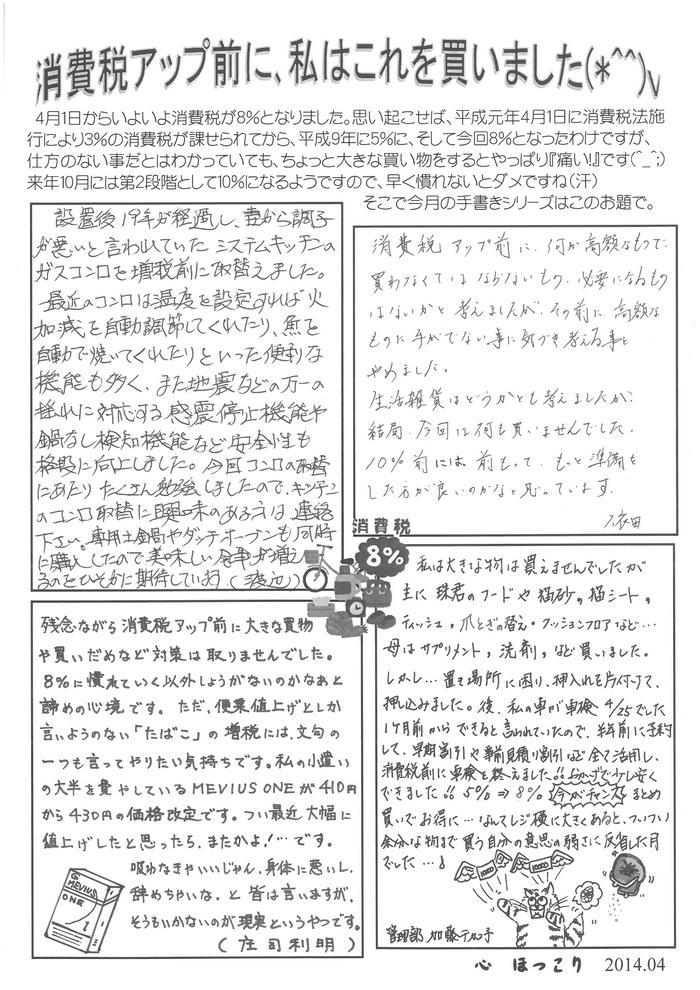 消費税アップ前に、私はこれを買いました(*^^)v
4月1日からいよいよ消費税が8%となりました。思い起こせば、平成元年4月1日に消費税法施
行により3%の消費税が課せられてから、平成9年に5%に、そして今回8%となったわけですが、
仕方のない事だとはわかっていても、ちょっと大きな買い物をするとやっぱり『痛い!』です(^_^;)
来年10月には第2段階として10%になるようですので、早く慣れないとダメですね(汗)
そこで今月の手書きシリーズはこのお題で。
設置後19年が経過し、妻から調子
が悪いと言われていたシステムキッチンの
ガスコンロを増税前に取替えました。
最近のコンロは温度を設定すれば火
加減を自動調節してくれたり、魚を
自動で焼いてくれたりといった便利な
機能も多く、また地震などの万一の
揺れに対応する感震停止機能や
鍋なし検知機能など安全性も
格段に向上しました。今回コンロの取替
にあたりたくさん勉強しましたので、キッチン
のコンロ取替に興味のある方は連絡
下さい。専用土鍋やダッチオーブンも同時
に購入したので美味しい食事が増え
るのをひそかに期待しています(渡辺)
消費税アップ前に、何か高額なもので、
買わなくてはならないもの、必要になるもの
はないかと考えましたが、その前に、高額な
ものに手がでない事に気づき考える事を
やめました。
生活雑貨はどうかとも考えましたが、
結局、今回は何も買いませんでした。
10%前には、前もって、もっと準備を
した方が良いのかなと思っています。
依田
消費税
8%
残念ながら消費税アップ前に大きな買物
や買いだめなど対策は取りませんでした。
8%に慣れていく以外しょうがないのかなあと
諦めの心境です。ただ、便乗値上げとしか
言いようのない「たばこ」の増税には、文句の
一つも言ってやりたい気持ちです。私の小遣い
の大半を費やしているMEVIUS ONEが410円
から430円の価格改定です。つい最近大幅に
値上げしたと思ったら、またかよ!…です。
吸わなきゃいいじゃん、身体に悪いし、
辞めちゃいな。と皆は言いますが、
そうもいかないのが現実というやつです。
(庄司利明)
MEVIUS
ONE
私は大きな物は買えませんでしたが
主に珠君のフードや猫砂。猫シート。
ティッシュ。爪とぎの替え・クッションフロアなど…
母はサプリメント。洗剤。など買いました。
しかし…置き場所に困り、押入れを片付けて、
押込みました。後、私の車が車検4/25でした
1ヶ月前からできると言われていたので、半年前に予約
して、早期割引や事前見積り割引など全て活用し、
消費税前に車検を終えました!!おかげで少し安く
できました!!5%⇒8% 今がチャンス まとめ
買いでお得に…なんてレジ横に大きくあると、ついつい
余分な物まで買う自分の意思の弱さに反省した月
でした…!
10000
10000
管理部 加藤テル子
心 ほっこり 2014.04